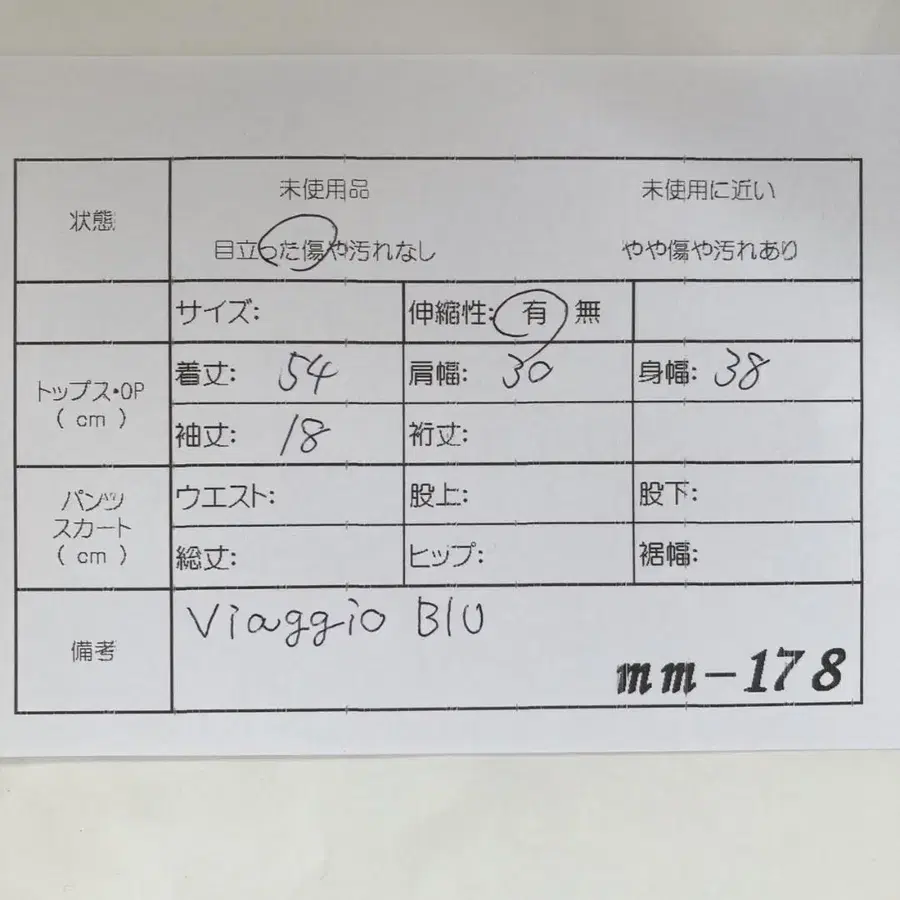 状態
未使用品 未使用に近い
目立った傷や汚れなし やや傷や汚れあり
サイズ: 伸縮性: 有 無
トップス・OP
( cm )
着丈: 54 肩幅: 30 身幅: 38
袖丈: 18 裄丈:
パンツ
スカート
( cm )
ウエスト: 股上: 股下:
総丈: ヒップ: 裾幅:
備考
Viaggio Blu
mm-178